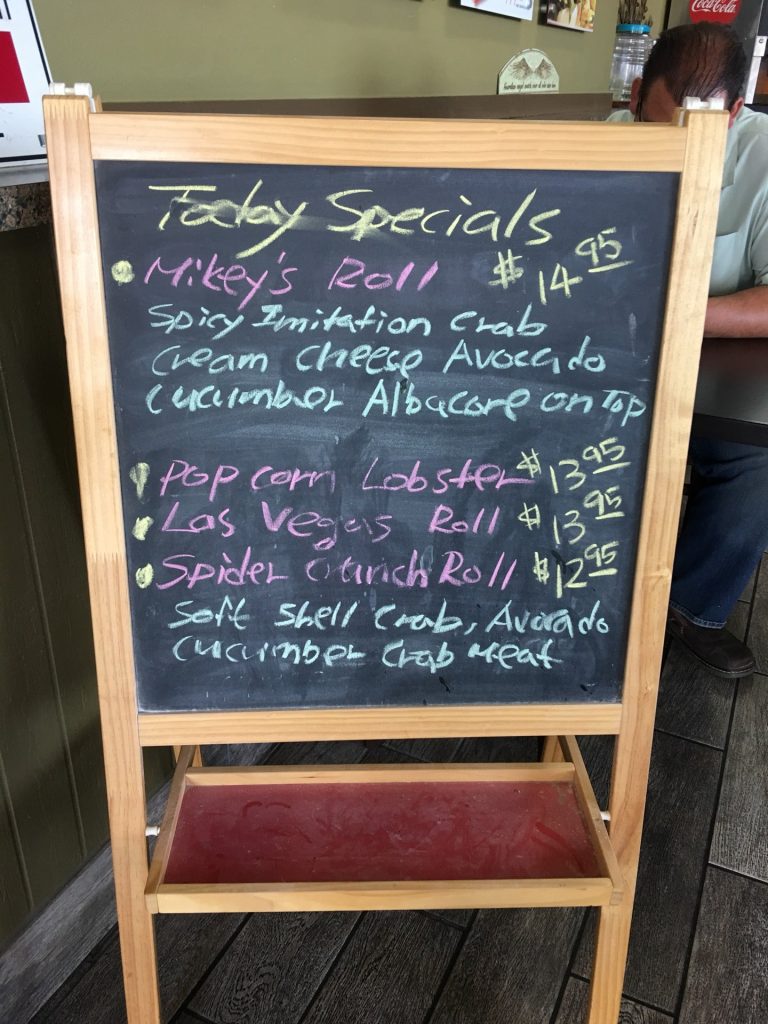 Coca-Cola
Today Specials
Mikey's Roll $14.95
Spicy Imitation Crab
Cream Cheese Avocado
Cucumber Albacore on Top
Popcorn Lobster $13.95
Las Vegas Roll $13.95
Spider Crunch Roll $12.95
Soft Shell Crab, Avocado
Cucumber Crab Meat